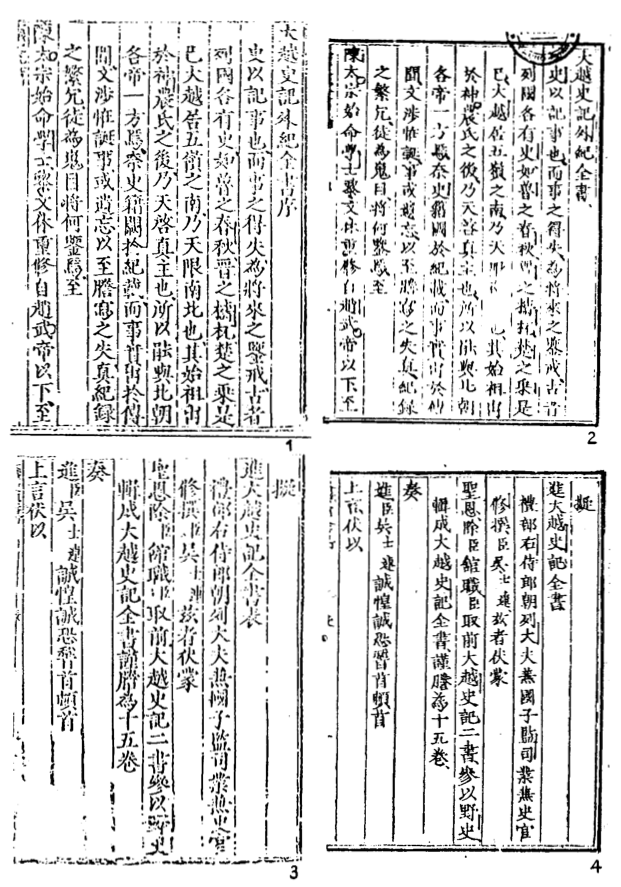 大越史記外紀全書序
史以記事也而事之得失為將來之鑒戒古者
列國各有史如魯之春秋晋之檮杌楚之乘是
已大越居五嶺之南乃天限南北也其始祖出
於神農氏之後乃天啓真主也所以能與北朝
各帝一方焉柰史籍闕於紀載而事實出於傳
聞文涉恠誕事或遺忘以至謄寫之失真紀録
之繁冗徒為嵬目將何鑒焉至
陳太宗始命學士黎文休重修自趙武帝以下至
1
大越史記外紀全書
史以記事也而事之得失為將來之鑒戒古者
列國各有史如魯之春秋 之檮杌楚之乘是
已大越居五嶺之南乃天限 也其始祖出
於神農氏之後乃天啓真主也所以能與北朝
各帝一方焉柰史籍國於紀載而事實出於傳
聞文涉恠誕事或遺忘以至謄寫之失真紀録
之繁冗徒為嵬目將何鑒焉至
陳太宗始命學士黎文休重修自趙武帝以下至
2
擬
進大越史記全書表
禮部右侍郎朝列大夫兼國子監司業兼史官
修撰臣吳士連兹者伏蒙
聖恩除臣館職臣取前大越史記二書參以野史
輯成大越史記全書謹謄為十五卷
奏
進臣吳士連誠惶誠恐稽首頓首
上言伏以
3
擬
進大越史記全書
禮部右侍郎朝列大夫兼國子監司業兼史官
修撰臣吳士連兹者伏蒙
聖恩除臣館職臣取前大越史記二書參以野史
輯成大越史記全書謹謄為十五卷
奏
進臣吳士連誠惶誠恐稽首頓首
上言伏以
4